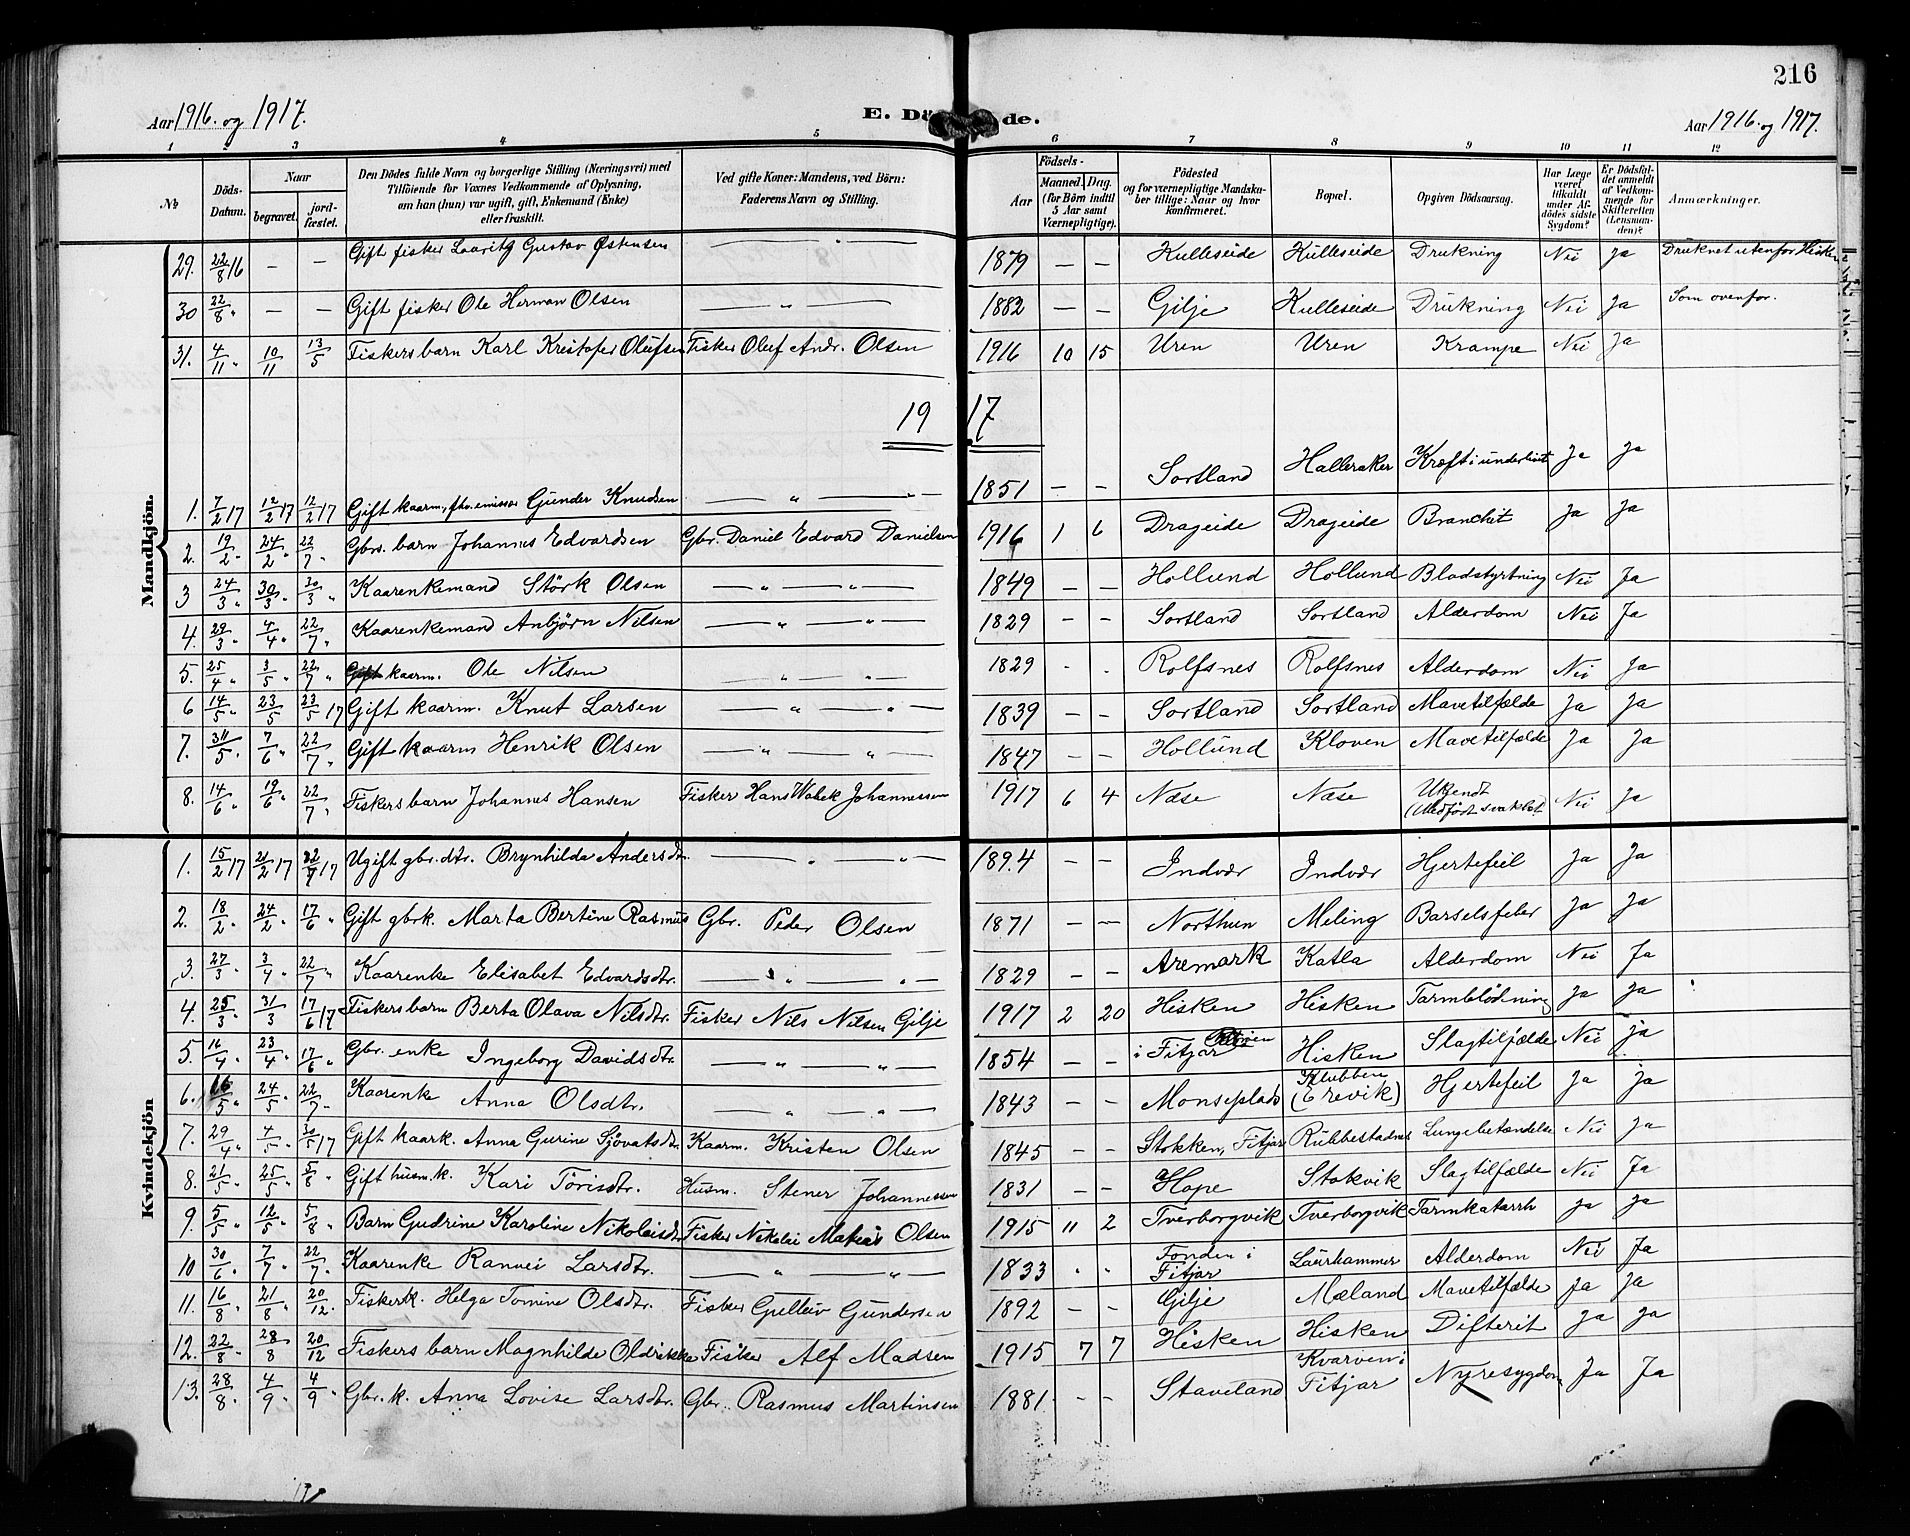 216
Aar 1916. og 1917.
E. Dä de.
Aar 1916. og 1917.
1 2 3 4 5 6 7 8 9 10 11 12
№
Döds-Datum.
Naar
begravet.
jord-fæstet.
Den Dödes fulde Navn og borgerlige Stilling (Næringsvei) med
Tilföiende for Voxnes Vedkommende af Oplysning,
om han (hun) var ugift, gift, Enkemand (Enke)
eller fraskilt.
Ved gifte Koner: Mandens, ved Börn:
Faderens Navn og Stilling.
Födsels-
Aar
Maaned. Dag.
(for Börn indtil
5 Aar samt
Værnepligtige).
Födested
og for værnepligtige Mandska-
ber tillige: Naar og hvor
konfirmeret.
Bopæl.
Opgiven Dödsaarsag.
Har Læge
været
tilkaldt
under Af-
dödes sidste
Sygdom?
Er Dödsfal-
det anmeldt
af Vedkom-
mende for
Skifteretten
(Lensman-
den)?
Anmærkninger.
Mandkjön.
29. 22/8 16 — — Gift fisker Lauritz Gustav Østensen — " — 1879 — — Kulleseide Kulleseide Drukning Nei Ja Druknet utenfor Hisken
30 22/8 " — — Gift fisker Ole Herman Olsen — " — 1882 — — Gilje Kulleseide Drukning Nei Ja Som ovenfor.
31. 4/11 " 10/11 13/5 Fiskers barn Karl Kristofer Olufsen Fisker Oluf Andr. Olsen 1916 10 15 Uren Uren Krampe Nei Ja
1917
1. 7/2 17 12/2 17 12/2 17 Gift kaarm, fhv. emissær Gunder Knudsen — " — " — 1851 — — Sortland Halleraker Kræft i underlivet Ja Ja
2. 19/2 " 24/2 " 22/7 " Gbrs. barn Johannes Edvardsen Gbr. Daniel Edvard Danielsen 1916 1 6 Drageide Drageide Bronchit Ja Ja
3 24/3 " 30/3 " 30/3 " Kaarenkemand Störk Olsen — " — " — 1849 — — Hollund Hollund Blodstyrtning Nei Ja
4. 29/3 " 4/4 " 22/7 " Kaarenkemand Anbjörn Nilsen — " — " — 1829 — — Sortland Sortland Alderdom Nei Ja
5. 25/4 " 3/5 " 22/7 " Gift kaarm. Ole Nilsen — " — " — 1829 - - Rolfsnes Rolfsnes Alderdom Nei Ja
6 14/5 " 23/5 23/5 17 Gift kaarm. Knut Larsen — " — " — 1839 — — Sortland Sortland Mavetilfælde Ja Ja
7. 31/5 " 7/6 " 22/7 " Gift kaarm Henrik Olsen — " — " — 1847 — — Hollund Kloven Mavetilfælde Ja Ja
8. 14/6 " 19/6 " 22/7 " Fiskers barn Johannes Hansen Fisker Hans Johannessen 1917 6 4 Næse Næse Ukjendt (Medfödt svakhet) Nei Ja
Kvindekjön
1. 15/2 17 21/2 17 22/7 17 Ugift gbr. dtr. Brynhilda Andersdtr. — " — " — 1894 — — Indvær Indvær Hjertefeil Ja Ja
2. 18/2 " 24/2 " 17/6 " Gift gbrk. Marta Bertine Rasmus Gbr. Peder Olsen 1871 — — Northun Meling Barselsfeber Ja Ja
3. 27/3 " 3/4 " 22/7 " Kaarenke Elisabet Edvardsdtr. — " — " — 1829 — — Aremark Katla Alderdom Nei Ja
4. 25/3 " 31/3 17/6 17 Fiskers barn Berta Olava Nilsdtr. Fisker Nils Nilsen Gilje 1917 2 20 Hisken Hisken Tarmblödning Ja Ja
5. 16/4 " 23/4 " 17/6 " Gbr. enke Ingeborg Davidsdtr. — " — " — 1854 — — i Fitjar Hisken Slagtilfælde Nei ja
6. 16/5 " 24/5 " 22/7 - Kaarenke Anna Olsdtr. — " — " — 1843 — — Monseplads Klubben (Erevik) Hjertefeil Ja ja
7. 29/4 " 4/5 " 30/5 17 Gift kaark. Anna Gurine Sjövatsdtr. Kaarm. Kristen Olsen 1845 — — Stokken, Fitjar Rubbestadnes Lungebetændelse Nei Ja
8. 21/5 " 25/5 " 5/8 " Gift husm.k. Kari Törisdtr. Husm. Stener Johannessen 1831 — — Hope Stokvik Slagtilfælde Nei Ja
9. 5/5 " 12/5 " 5/8 " Barn Gudrine Karoline Nikolaisdtr Fisker Nikolai Matias Olsen 1915 11 2 Tverborgvik Tverborgvik Tarmkatarrh Ja Ja
10 30/6 " 7/7 " 22/7 " Kaarenke Ranvei Larsdtr. — " — " — 1833 " " Fonden i Fitjar Laurhammer Alderdom Nei Ja
11. 16/8 " 21/8 " 20/12 " Fiskerk. Helga Tomine Olsdtr. Fisker Gulleiv Gundersen 1892 — — Gilje Mæland Mavetilfælde Ja Ja
12. 22/8 - 28/8 " 20/12 Fiskers barn Magnhilde Fisker Alf Madsen 1915 7 7 Hisken Hisken Difterit Ja Ja
13. 28/8 " 4/9 " 4/9 " Gbr. k. Anna Lovise Larsdtr. Gbr. Rasmus Martinsen 1881 - - Staveland Kvarven i Fitjar Nyresygdom Ja Ja